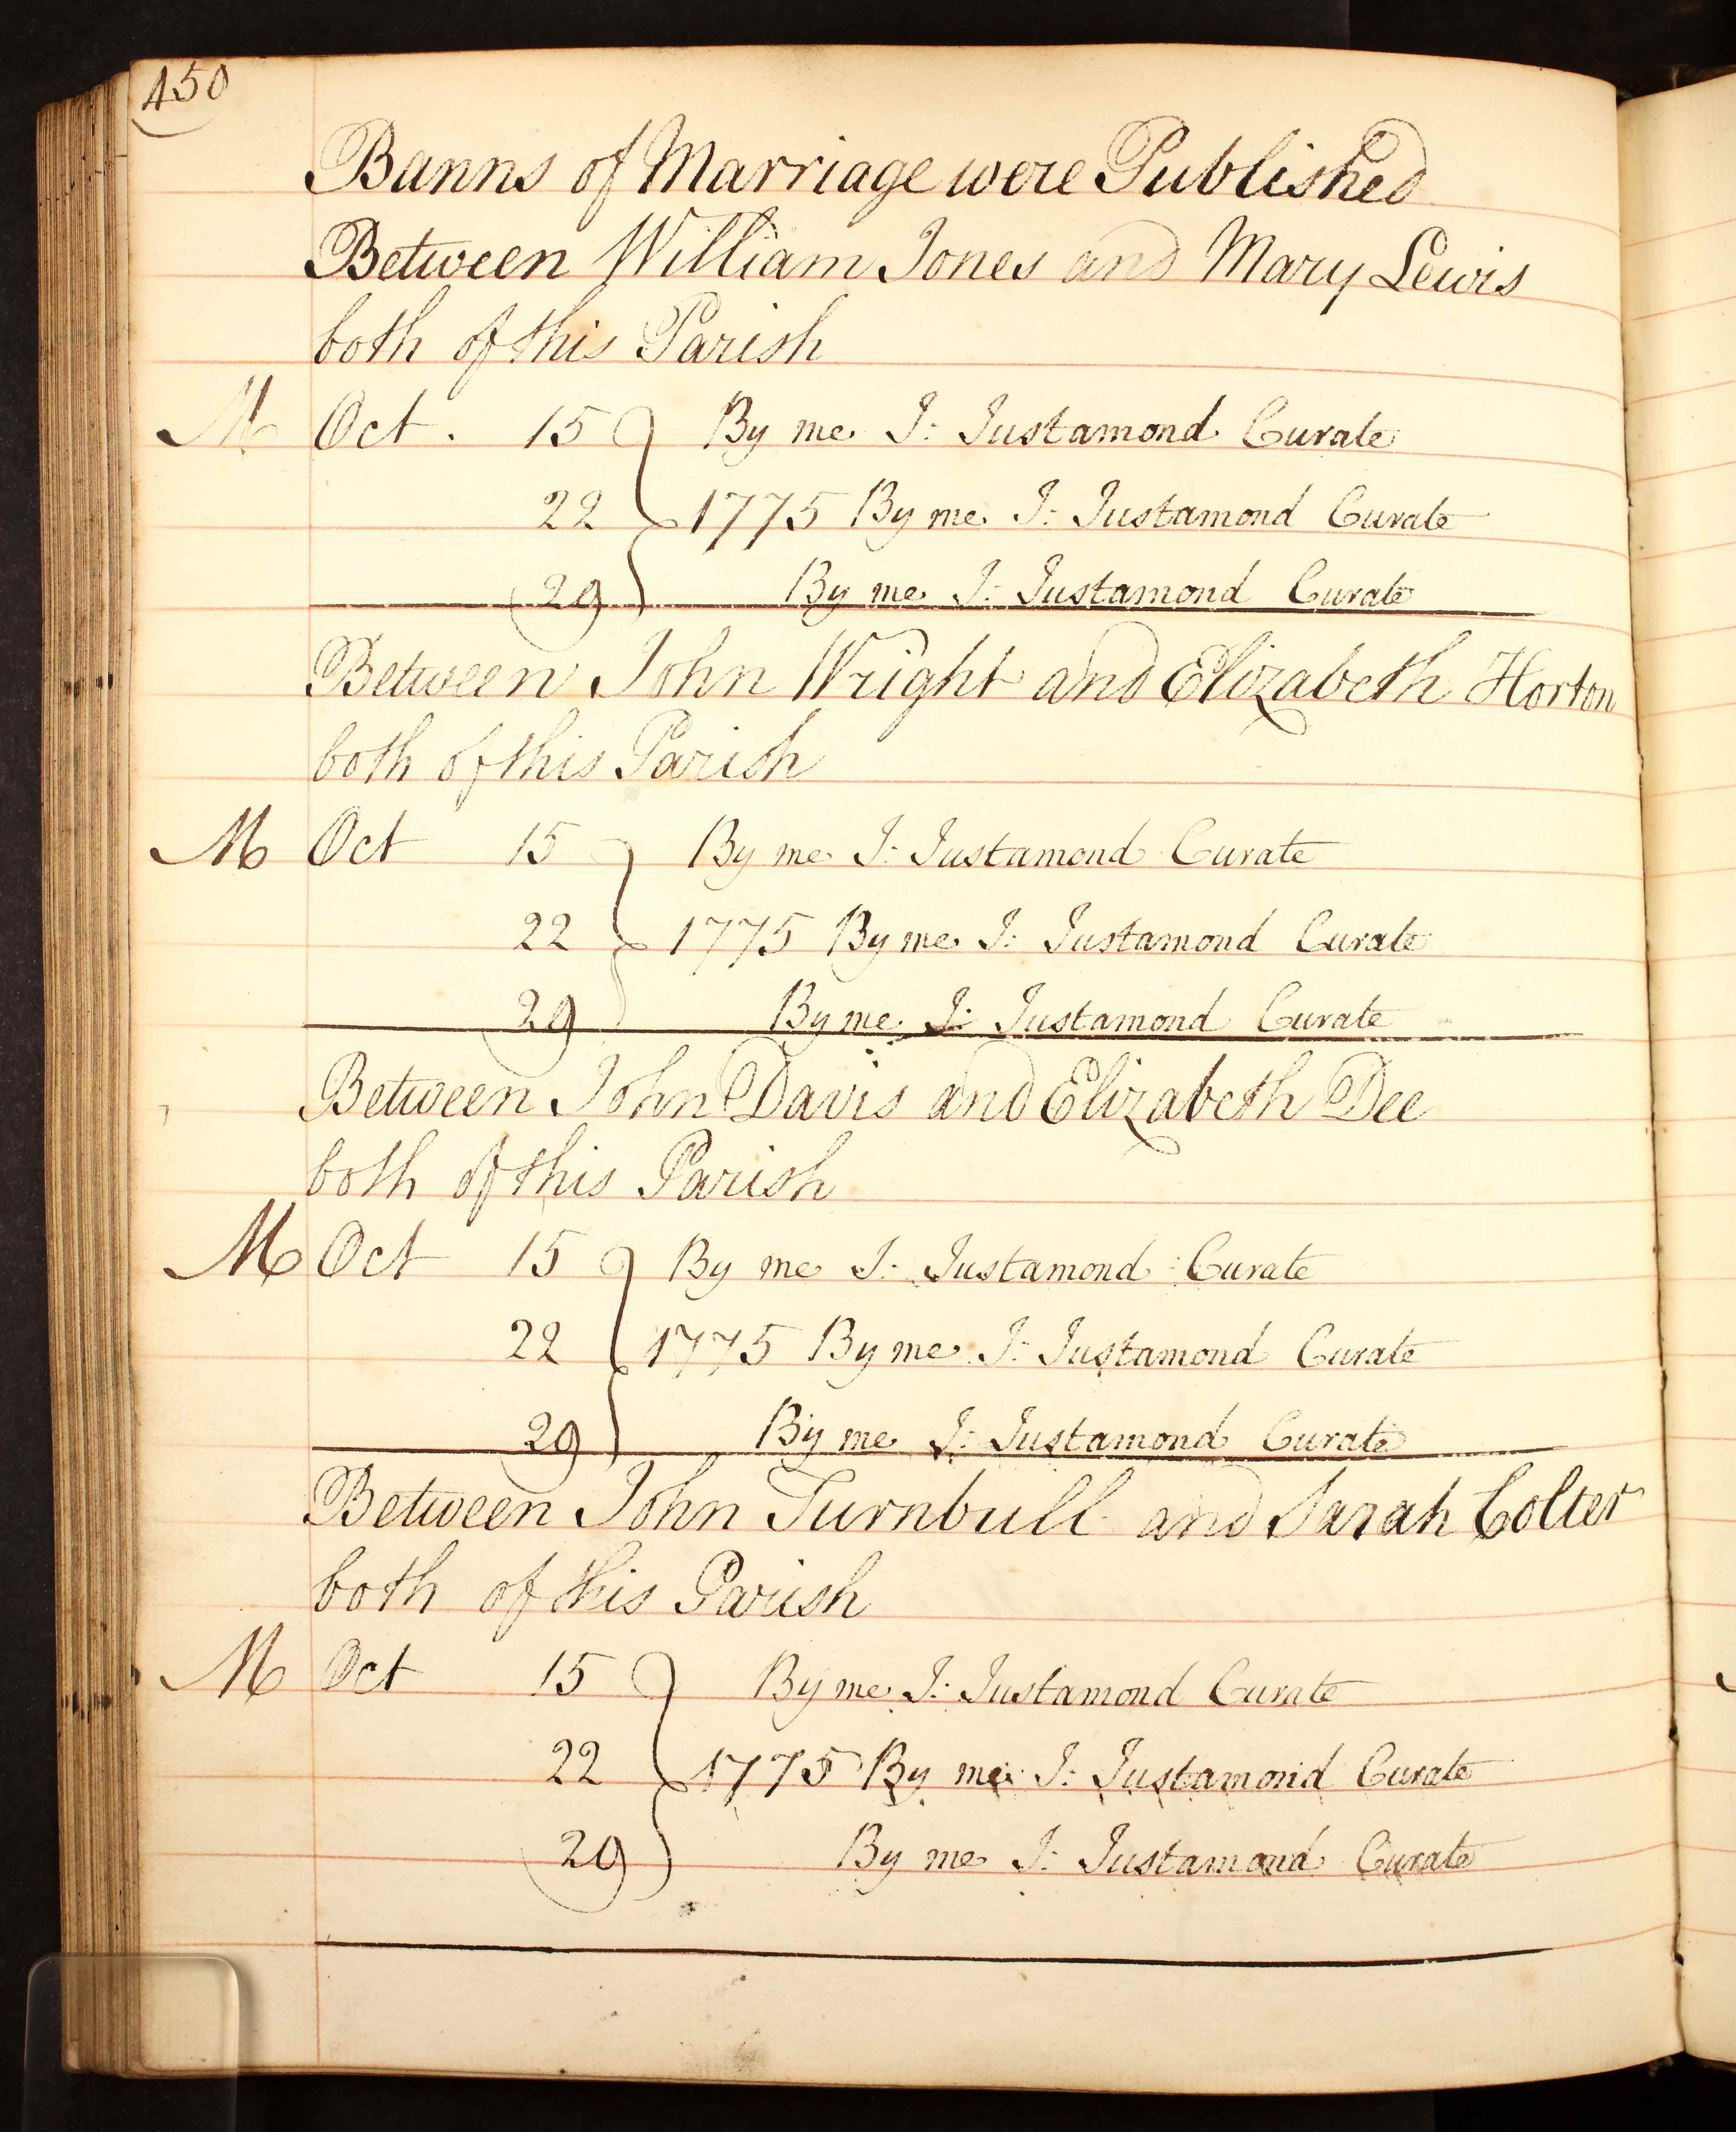 450
Banns of Marriage were Published
Between William Jones and Mary Lewis
both of this Parish
M Oct. 15 By me J: Justamond Curate
22 1775 By me J: Justamond Curate
29 By me J: Justamond Curate
Between John Wright and Elizabeth Horton
both of this Parish
M Oct 15 By me J: Justamond Curate
22 1775 By me J: Justamond Curate
29 By me J: Justamond Curate
Between John Davis and Elizabeth Dee
both of this Parish
M Oct 15 By me J: Justamond Curate
22 1775 By me J: Justamond Curate
29 By me J: Justamond Curate
Between John Turnbull and Sarah Colter
both of this Parish
M Oct 15 By me J: Justamond Curate
22 1775 By me J: Justamond Curate
29 By me J: Justamond Curate